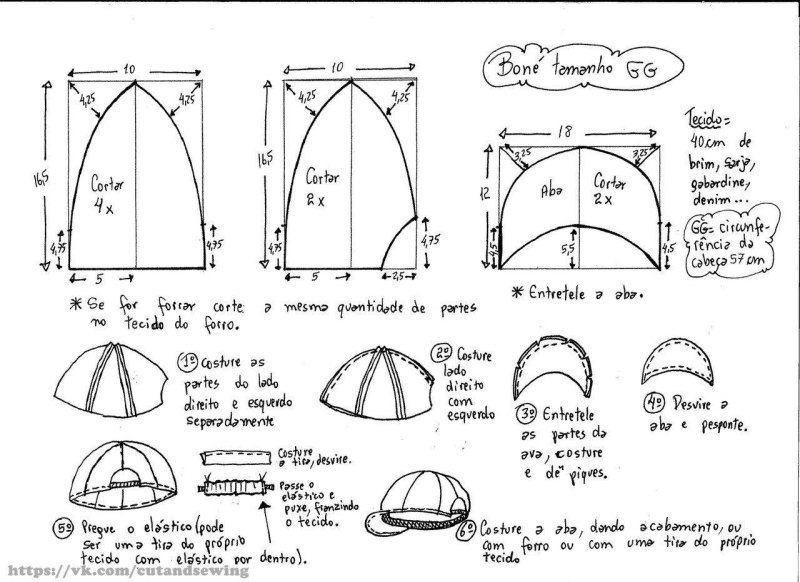 Boné tamanho GG
10
4,25
4,25
16,5
Cortar
4x
4,75
4,75
5
10
4,25
4,25
16,5
Cortar
2x
4,75
4,75
5
2,5
18
3,25
3,25
12
Aba
Cortar
2x
4,5
5,5
4,5
Tecido=
40cm de
brim, sarja,
gabardine,
denim...
GG= circunfe-
rência da
cabeça 57cm
* Se for forrar corte a mesma quantidade de partes
no tecido do forro.
* Entretele a aba.
1º Costure as
partes do lado
direito e esquerdo
separadamente
2º Costure
lado
direito
com
esquerdo
3º Entretele
as partes da
ava, costure
e dê piques.
4º Desvire a
aba e pesponte.
Costure
a tira, desvire.
Passe o
elástico e
puxe, franzindo
o tecido.
5º Pregue o elástico (pode
ser uma tira do próprio
tecido com elástico por dentro).
6º Costure a aba, dando acabamento, ou
com forro ou com uma tira do próprio
tecido
https://vk.com/cutandsewing